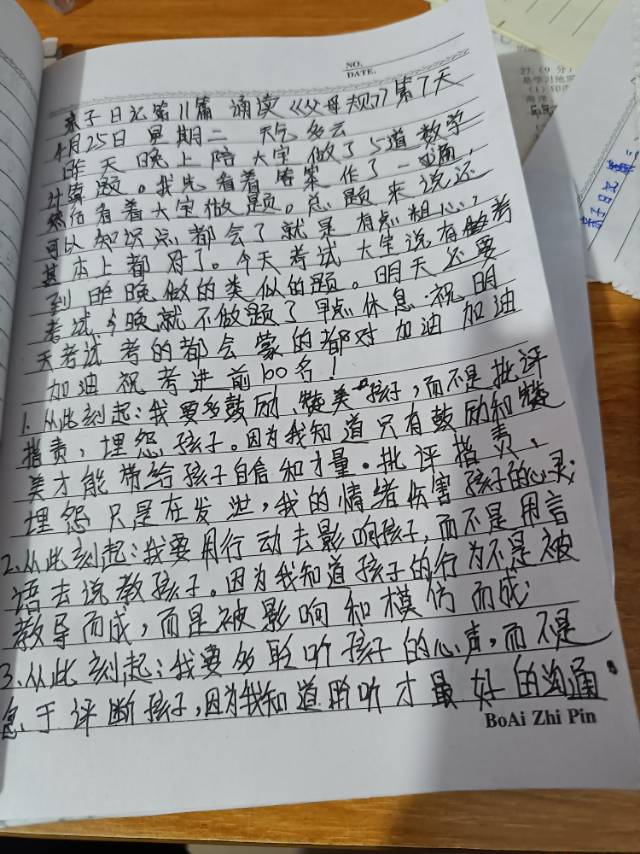 NO.
DATE.
亲子日记第11篇 诵读《父母规》第7天
4月25日 星期二 天气多云
昨天晚上陪大宝做了5道数学
计算题。我先看着答案作了一遍,
然后看着大宝做题。总题来说还
可以知识点都会了就是有点粗心,
基本上都对了。今天考试大宝说有够考
到昨晚做的类似的题。明天还要
考试今晚就不做题了早点休息.祝明
天考试考的都会蒙的都对加油加油
加油祝考进前100名!
1、从此刻起:我要多鼓励、赞美孩子,而不是批评
指责,埋怨孩子。因为我知道只有鼓励和赞
美才能带给孩子自信和才量。批评指责、
埋怨只是在发泄,我的情绪伤害孩子的心灵;
2、从此刻起:我要用行动去影响孩子,而不是用言
语去说教孩子。因为我知道孩子的行为不是被
教导而成,而是被影响和模仿而成;
3、从此刻起:我要多聆听孩子的心声,而不是
急于评断孩子,因为我知道聆听才最好的沟通。
BoAi Zhi Pin
亲子日记 第
27.(9分)
(1)